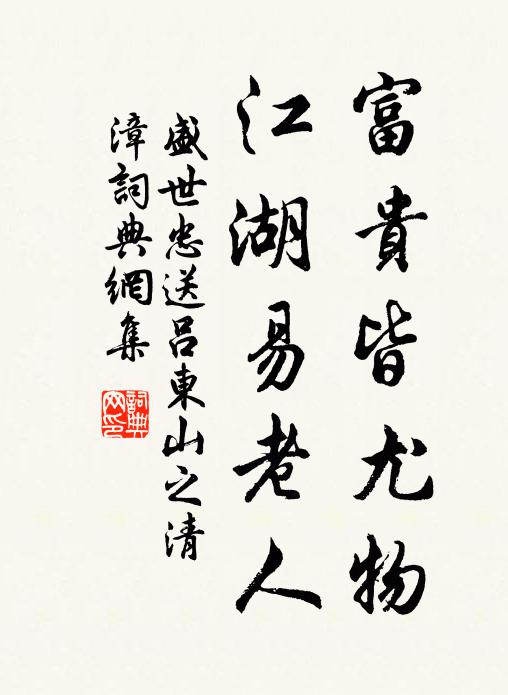 富貴皆尤物
江湖易老人
盛世忠送呂東山之清
漳詞典網集
詞典
网印